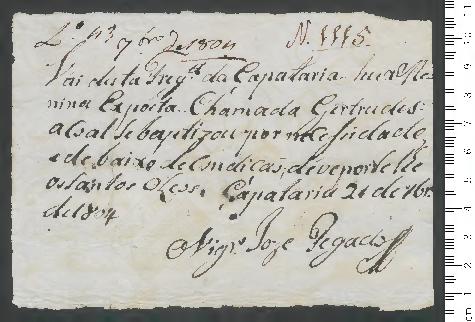 L.º 43 7br.º 2 1804 N. 1115.
Vai desta Freg.ª da Capataria hua Me
nina Exposta Chamada Gertrudes:
a qual se baptizou por necesidade
e debaixo de Comdicaó, deveporselhe
os Santos Oleos. Capataria 21 de 7br.
de 1804
Vigr.º Joze Pegado